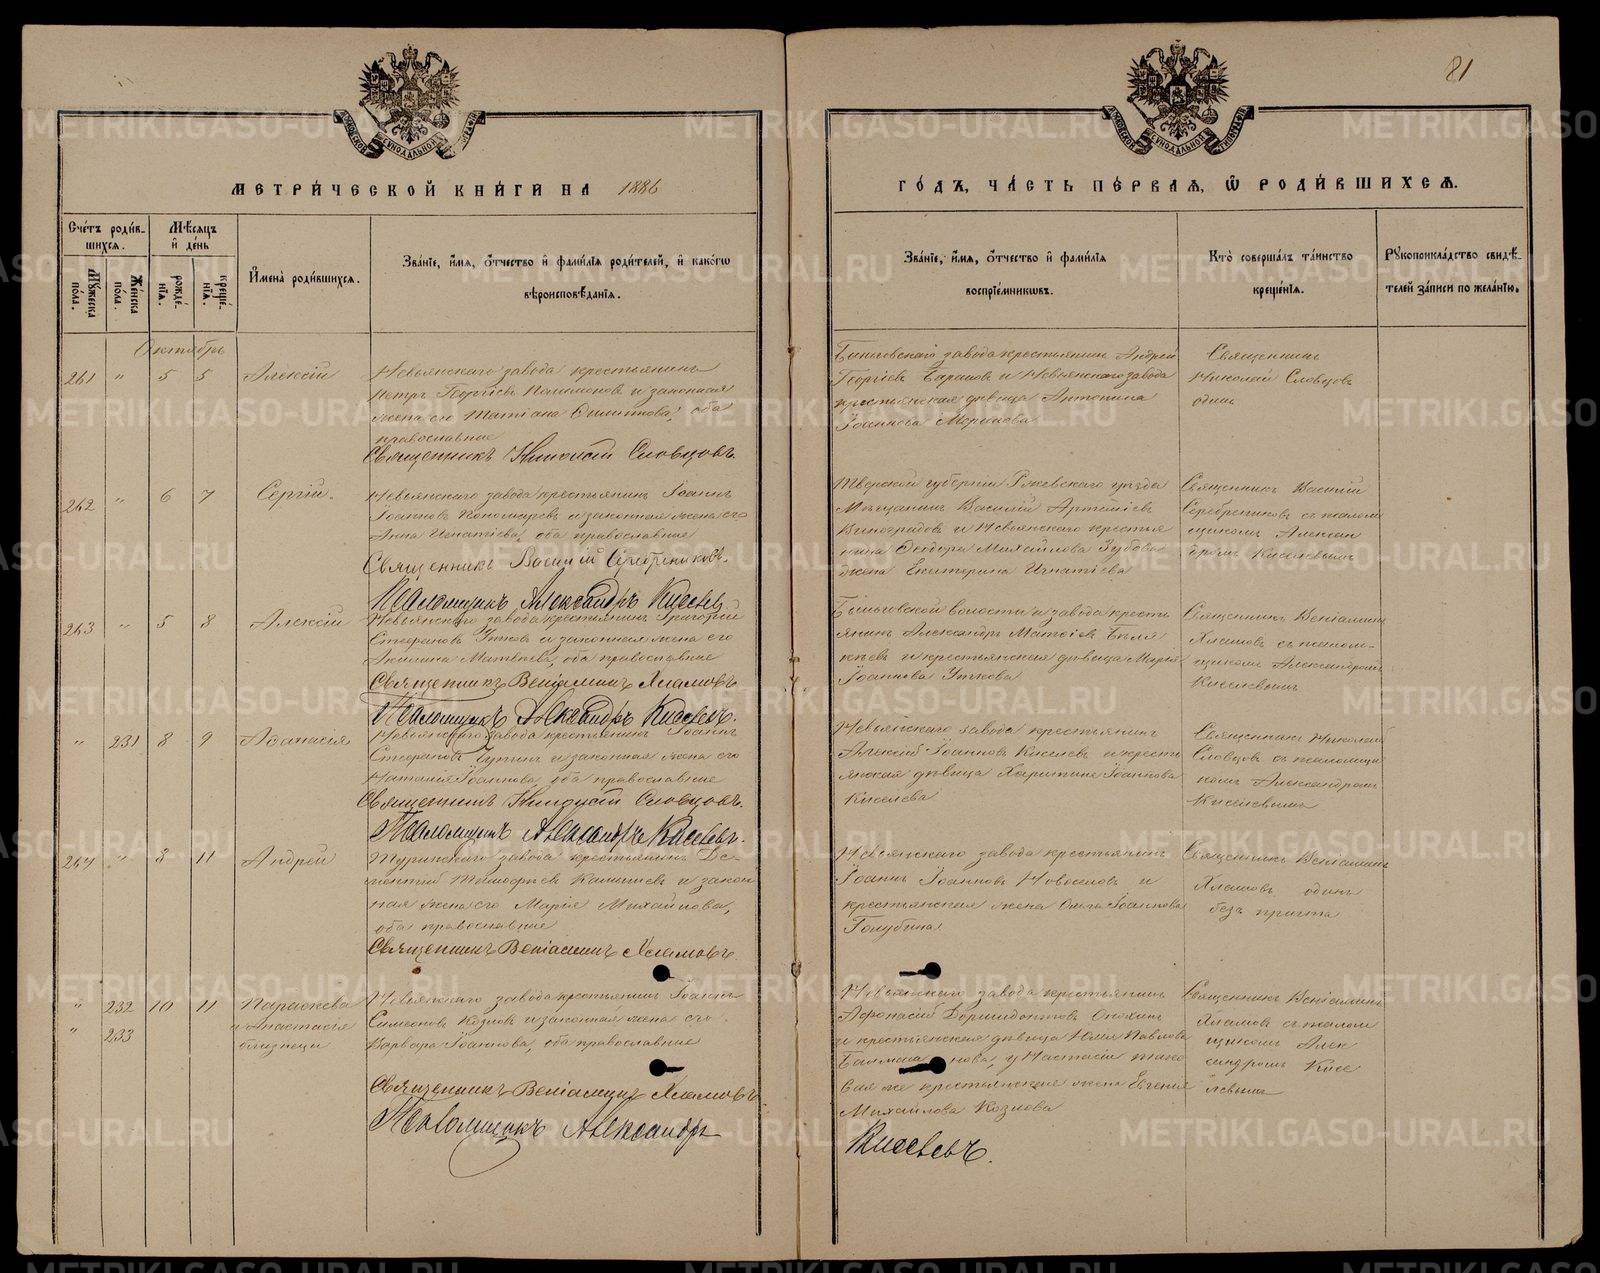 81
МЕТРИ́ЧЕСКОЙ КНИ́ГИ НА 1886
ГО́ДЪ, ЧА́СТЬ ПЕ́РВАЯ, Ѡ РОДИ́ВШИХСѦ.
Сче́тъ роди́в-
шихсѧ.
Мѣ́сѧцъ
и̑ де́нь
Мꙋжеска
по́ла.
Же́нска
по́ла.
рожде́-
нїѧ.
креще́-
нїѧ.
И̑мена̀ роди́вшихсѧ.
Зва́нїе, и̑́мѧ, ѻ̑́тчество и̑ фами́лїѧ роди́телей, и̑ како́гѡ
вѣроисповѣ́данїѧ.
Зва́нїе, и̑́мѧ, ѻ̑́тчество и̑ фами́лїѧ
воспрїе́мникѡвъ.
Кто̀ соверша́лъ та́инство
креще́нїѧ.
Рꙋкоприкла́дство свидѣ́-
телей за́писи по жела́нїю.
Октябрь
261 " 5 5 Алексій
Невьянскаго завода крестьянинъ
Петръ Георгіевъ и законная
жена его Татіана оба
православные
Священникъ Николай Словцовъ.
завода крестьянинъ Андрей
Георгіевъ и Невьянскаго завода
крестьянская дѣвица Антонина
Іоаннова
Священникъ
Николай Словцовъ
одинъ
262 " 6 7 Сергій.
Невьянскаго завода крестьянинъ Іоаннъ
Іоанновъ Пономаревъ и законная жена его
Анна Игнатіева, оба православные
Священникъ Василій Серебренниковъ.
Псаломщикъ Александръ Киселевъ
Тверской губерніи Ржевскаго уѣзда
Мѣщанинъ Василій Артеміевъ
Виноградовъ и Невьянскаго крестья
нина Михайлова Зубова
жена Екатерина Игнатіева
Священникъ Василій
Серебренниковъ съ псалом
щикомъ Алексан
дромъ Киселевымъ
263 " 5 8 Алексій
Невьянскаго завода крестьянинъ Григорій
Стефановъ Утковъ и законная жена его
Акилина Матвѣева, оба православные
Священникъ Веніаминъ Хламовъ
Псаломщикъ Александръ Киселевъ.
волости и завода кресть
янинъ Александръ
и крестьянская дѣвица Марія
Іоаннова Уткова
Священникъ Веніаминъ
Хламовъ съ псалом-
щикомъ Александромъ
Киселевымъ
" 231 8 9 Аѳанасія
Невьянскаго завода крестьянинъ Іоаннъ
Стефановъ и законная жена его
Наталія Іоаннова, оба православные
Священникъ Николай Словцовъ.
Псаломщикъ Александръ Киселевъ.
Невьянскаго завода крестьянинъ
Алексій Іоанновъ Киселевъ и кресть
янская дѣвица Іоаннова
Киселева
Священникъ Николай
Словцовъ съ псаломщи
комъ Александромъ
Киселевымъ
264 " 8 11 Андрей
Туринскаго завода крестьянинъ Де-
ментій Тимоѳеевъ и закон
ная жена его Марія Михайлова,
оба православные
Священникъ Веніаминъ Хламовъ.
Невьянскаго завода крестьянинъ
Іоаннъ Іоанновъ Новоселовъ и
крестьянская жена Ольга Іоаннова
Голубина
Священникъ Веніаминъ
Хламовъ одинъ
безъ причта
" 232 10 11 Параскева
" 233 и Анастасія
близнецы
Невьянскаго завода крестьянинъ Іоаннъ
Симеоновъ Козловъ и законная жена его
Варвара Іоаннова, оба православные
Священникъ Веніаминъ Хламовъ
Псаломщикъ Александръ
Невьянскаго завода крестьянинъ
Афонасій
и крестьянская дѣвица Юлія Павлова
у Настасіи
же крестьянская жена Евгенія
Михайлова Козлова
Киселевъ.
Священникъ Веніаминъ
Хламовъ съ псалом
щикомъ Алек
сандромъ Кисе
левымъ